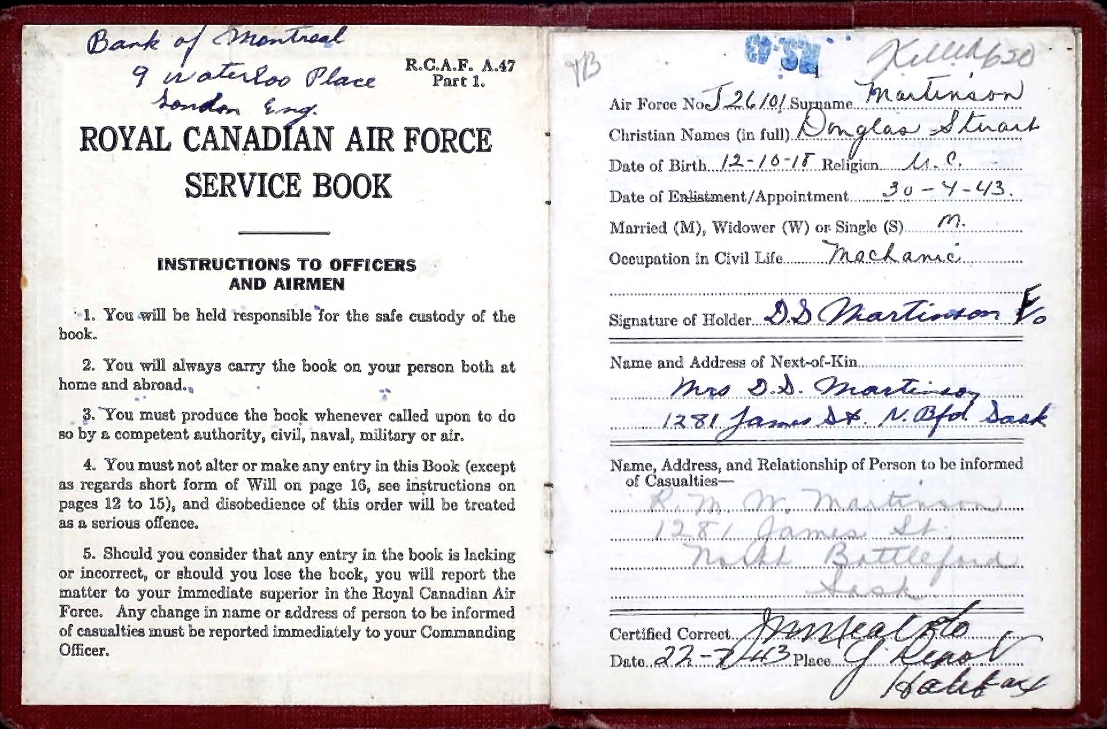 Bank of Montreal
9 Waterloo Place
London Eng.
R.C.A.F. A.47
Part 1.
ROYAL CANADIAN AIR FORCE
SERVICE BOOK
INSTRUCTIONS TO OFFICERS
AND AIRMEN
1. You will be held responsible for the safe custody of the
book.
2. You will always carry the book on your person both at
home and abroad.
3. You must produce the book whenever called upon to do
so by a competent authority, civil, naval, military or air.
4. You must not alter or make any entry in this Book (except
as regards short form of Will on page 16, see instructions on
pages 12 to 15), and disobedience of this order will be treated
as a serious offence.
5. Should you consider that any entry in the book is lacking
or incorrect, or should you lose the book, you will report the
matter to your immediate superior in the Royal Canadian Air
Force. Any change in name or address of person to be informed
of casualties must be reported immediately to your Commanding
Officer.
Killed
1
Air Force No. J26101 Surname Martinson
Christian Names (in full) Douglas Stuart
Date of Birth 12-10-18 Religion U.C.
Date of Enlistment/Appointment 30-4-43.
Married (M), Widower (W) or Single (S) M.
Occupation in Civil Life Mechanic
Signature of Holder D.S Martinson F/o
Name and Address of Next-of-Kin
Mrs D.S. Martinson
1281 James St. N. Bfd Sask
Name, Address, and Relationship of Person to be informed
of Casualties—
R. M. W. Martinson
1281 James St.
North Battleford
Sask
Certified Correct F/o
Date 22-7/43 Place Y Depot
Halifax